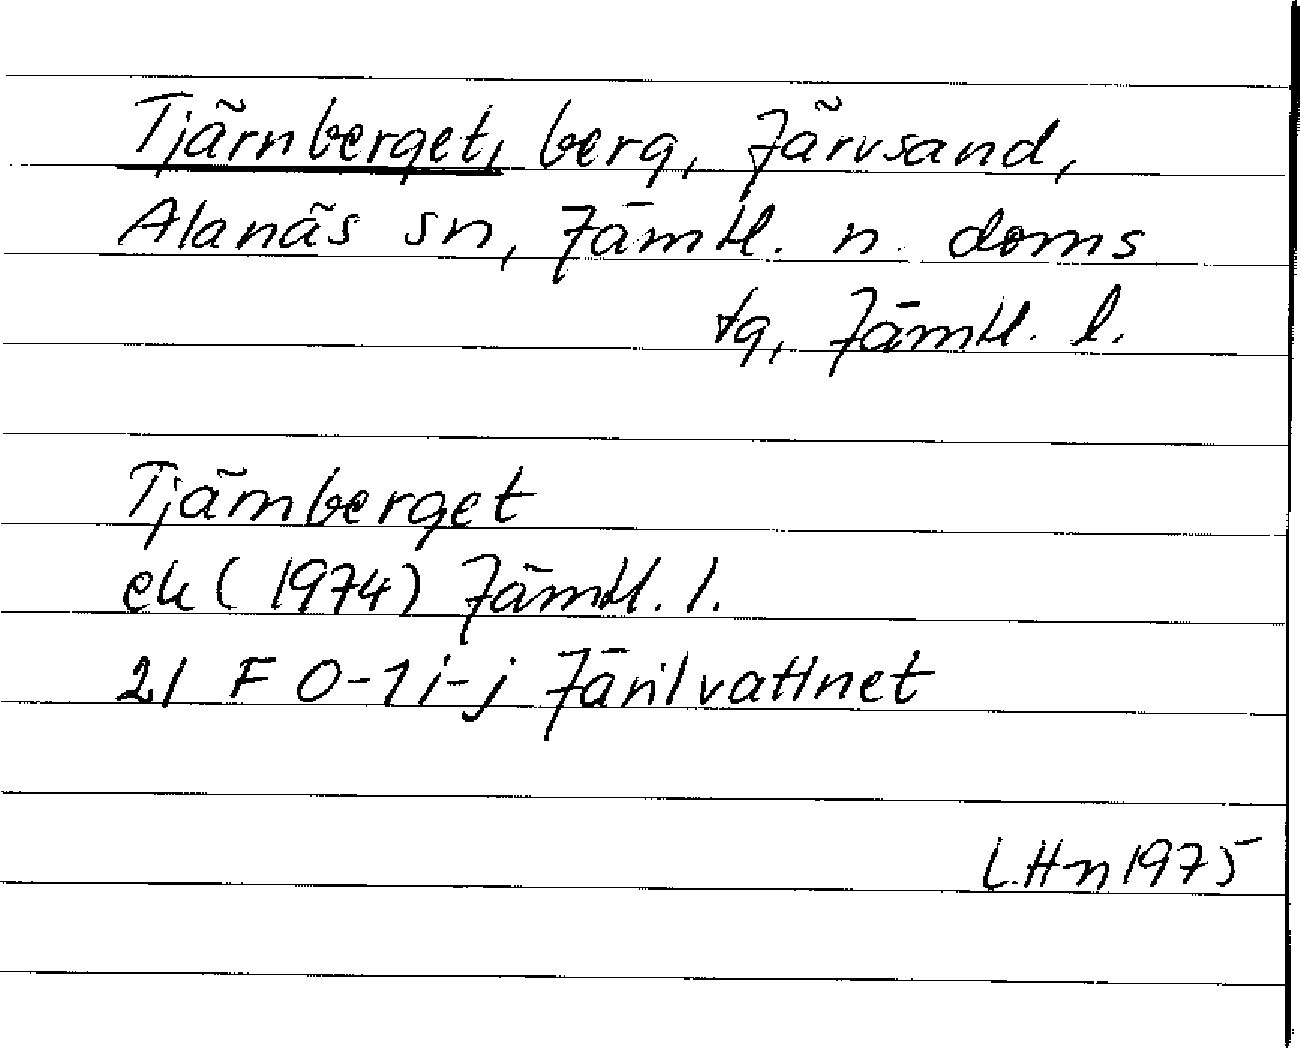 Tjärnberget, berg, Järvsand,
Alanäs sn, Jämtl. n. doms
tg, Jämtl. l.
Tjärnberget
ek (1974) Jämtl. l.
21 F 0-1 i-j Järilvattnet
L.Hn 1975